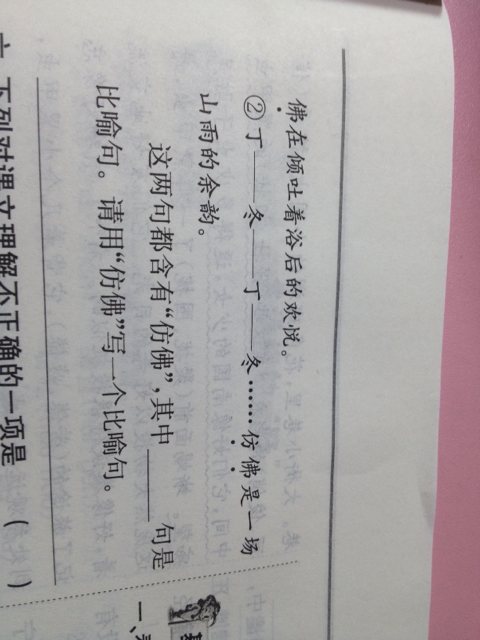 佛在倾吐着浴后的欢悦。
②丁——冬——丁——冬……仿佛是一场
山雨的余韵。
这两句都含有“仿佛”,其中____句是
比喻句。请用“仿佛”写一个比喻句。
下列对课文理解不正确的一项是 ( )
一、